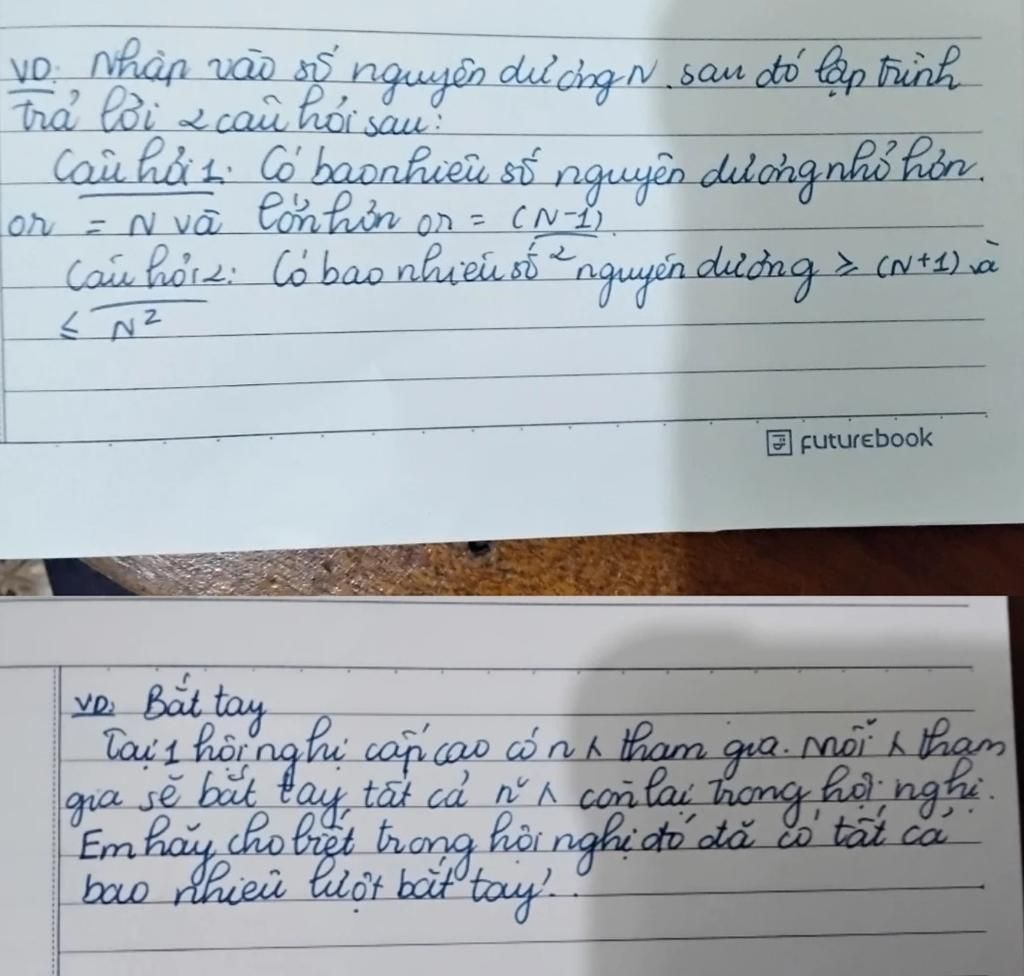 VD: Nhập vào số nguyên dương N. sau đó lập trình
trả lời 2 câu hỏi sau:
Câu hỏi 1: Có bao nhiêu số nguyên dương nhỏ hơn.
or = N và lớn hơn or = (N-1)²
Câu hỏi 2: Có bao nhiêu số nguyên dương ≥ (N+1) và
≤ N²
futurebook
VD: Bắt tay
Tại 1 hội nghị cấp cao có n λ tham gia. Mỗi λ tham
gia sẽ bắt tay tất cả λ còn lại trong hội nghị.
Em hãy cho biết trong hội nghị đó đã có tất cả
bao nhiêu lượt bắt tay!